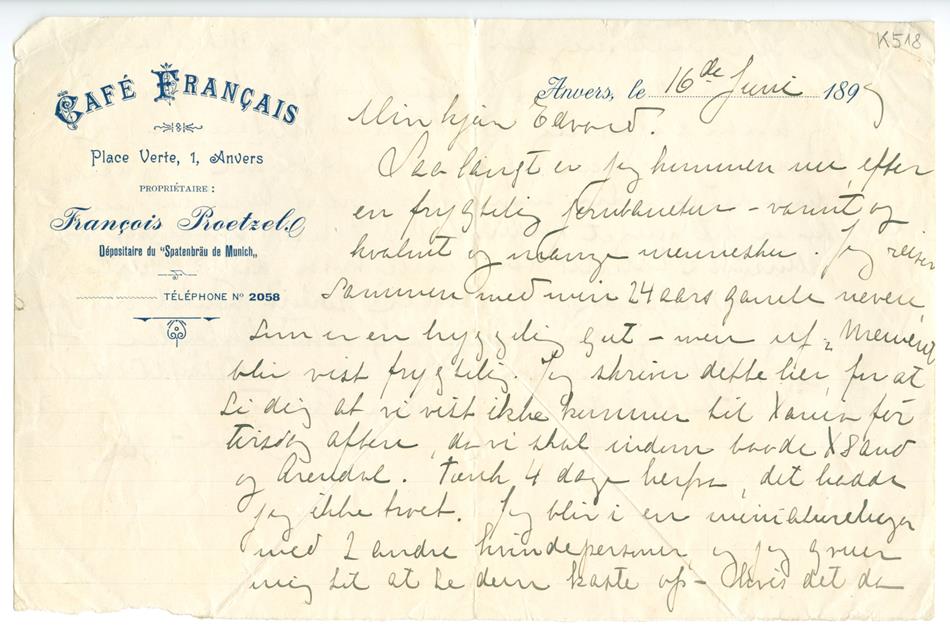 K518
CAFÉ FRANÇAIS
Place Verte, 1, Anvers
PROPRIÉTAIRE :
François Proetzel
Dépositaire du "Spatenbräu de Munich„
TÉLÉPHONE Nº 2058
Anvers, le 16de Juni 1899
Min kjære Edvard.
Saa langt er jeg kommen nu, efter
en frygtelig Jernbanetur – varmt og
kvalmt og mange mennesker. Jeg reiser
sammen med min 24 aars gamle nevø
som er en hyggelig gut – men uf,
blir vist frygtelig. Jeg skriver dette her, for at
si dig at vi vist ikke kommer til Xania før
tirsdag aften, da vi skal indom baade XSand
og Arendal. Tænk 4 dage herfra, det hadde
jeg ikke troet. Jeg blir i en miniaturelugar
med 2 andre kvindepersoner og jeg gruer
mig til at se dem kaste op – Hvis det da